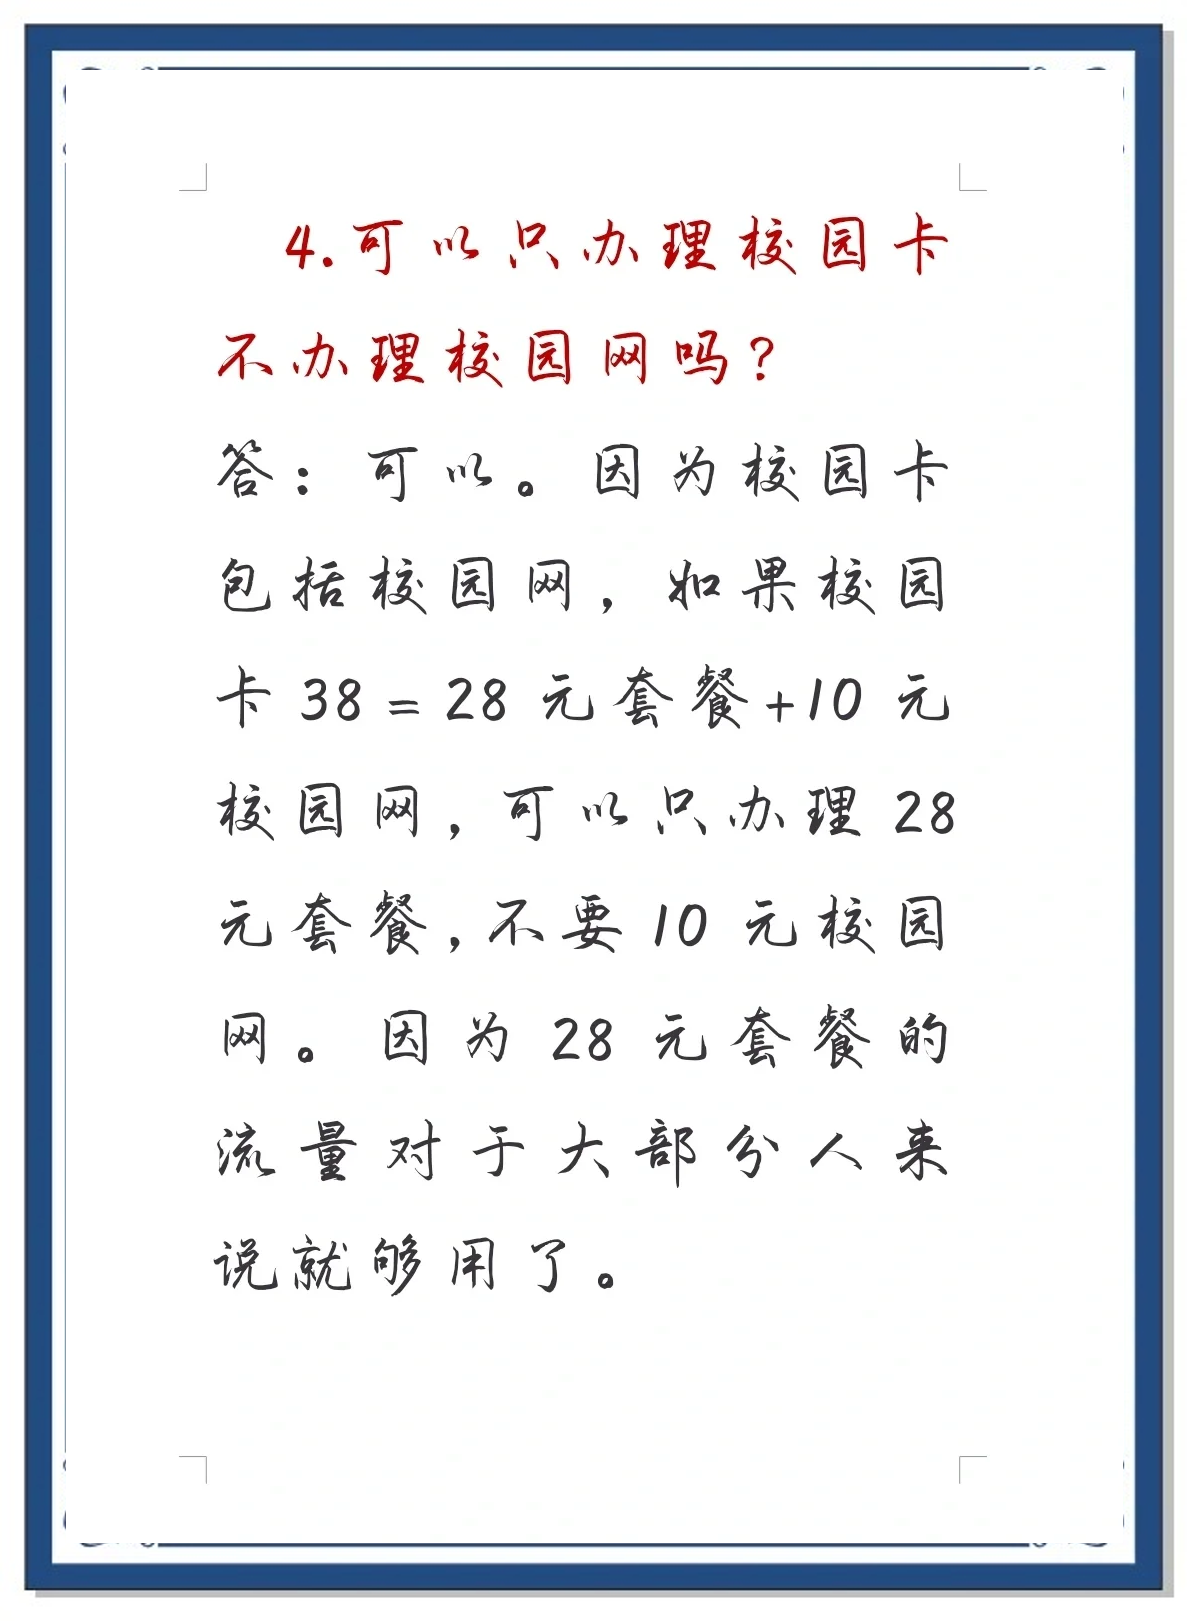 4.可以只办理校园卡
不办理校园网吗?
答：可以。因为校园卡
包括校园网，如果校园
卡 38 = 28 元套餐+10 元
校园网，可以只办理 28
元套餐，不要 10 元校园
网。因为 28 元套餐的
流量对于大部分人来
说就够用了。